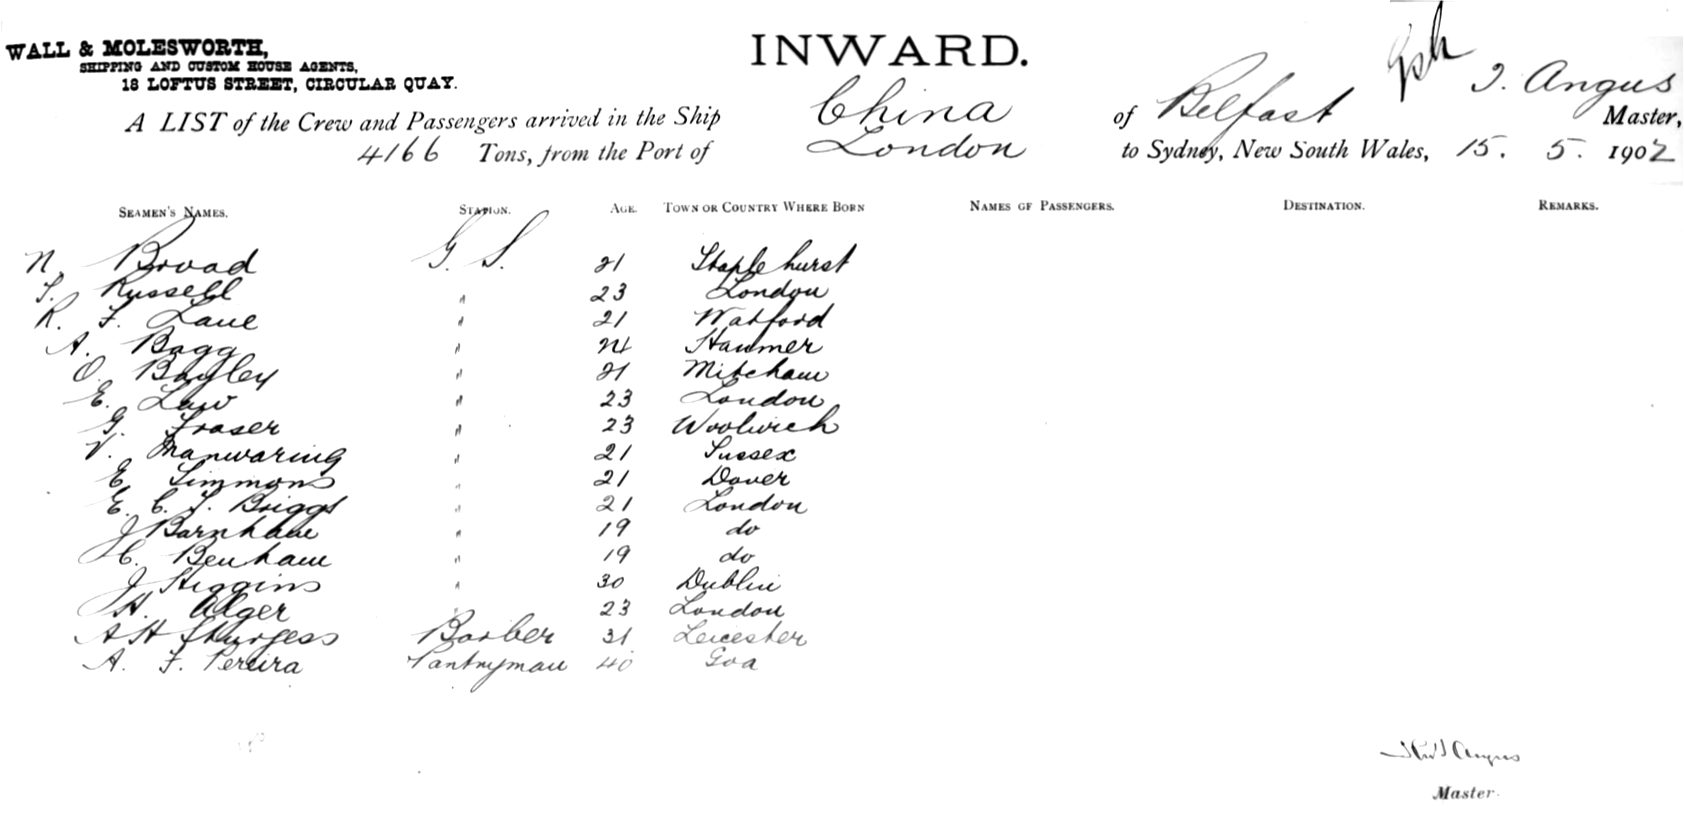 WALL & MOLESWORTH,
SHIPPING AND CUSTOM HOUSE AGENTS,
18 LOFTUS STREET, CIRCULAR QUAY.
INWARD.
A LIST of the Crew and Passengers arrived in the Ship China of Belfast T. Angus Master,
4166 Tons, from the Port of London to Sydney, New South Wales, 15. 5. 1902
SEAMEN'S NAMES. STATION. AGE. TOWN OR COUNTRY WHERE BORN NAMES OF PASSENGERS. DESTINATION. REMARKS.
N. Broad G. S. 21 Staplehurst
S. Russell " 23 London
R. F. Lane " 21 Watford
A. Bagg " 24 Hanmer
O. Bayley " 21 Mitcham
E. Law " 23 London
G. Fraser " 23 Woolwich
V. Manwaring " 21 Sussex
E. Simmons " 21 Dover
E. C. S. Briggs " 21 London
J Barnham " 19 do
H. Benham " 19 do
J Higgins " 30 Dublin
H. Alger " 23 London
A H Sturgess Barber 31 Leicester
A. F. Pereira Pantryman 40 Goa
Angus
Master.